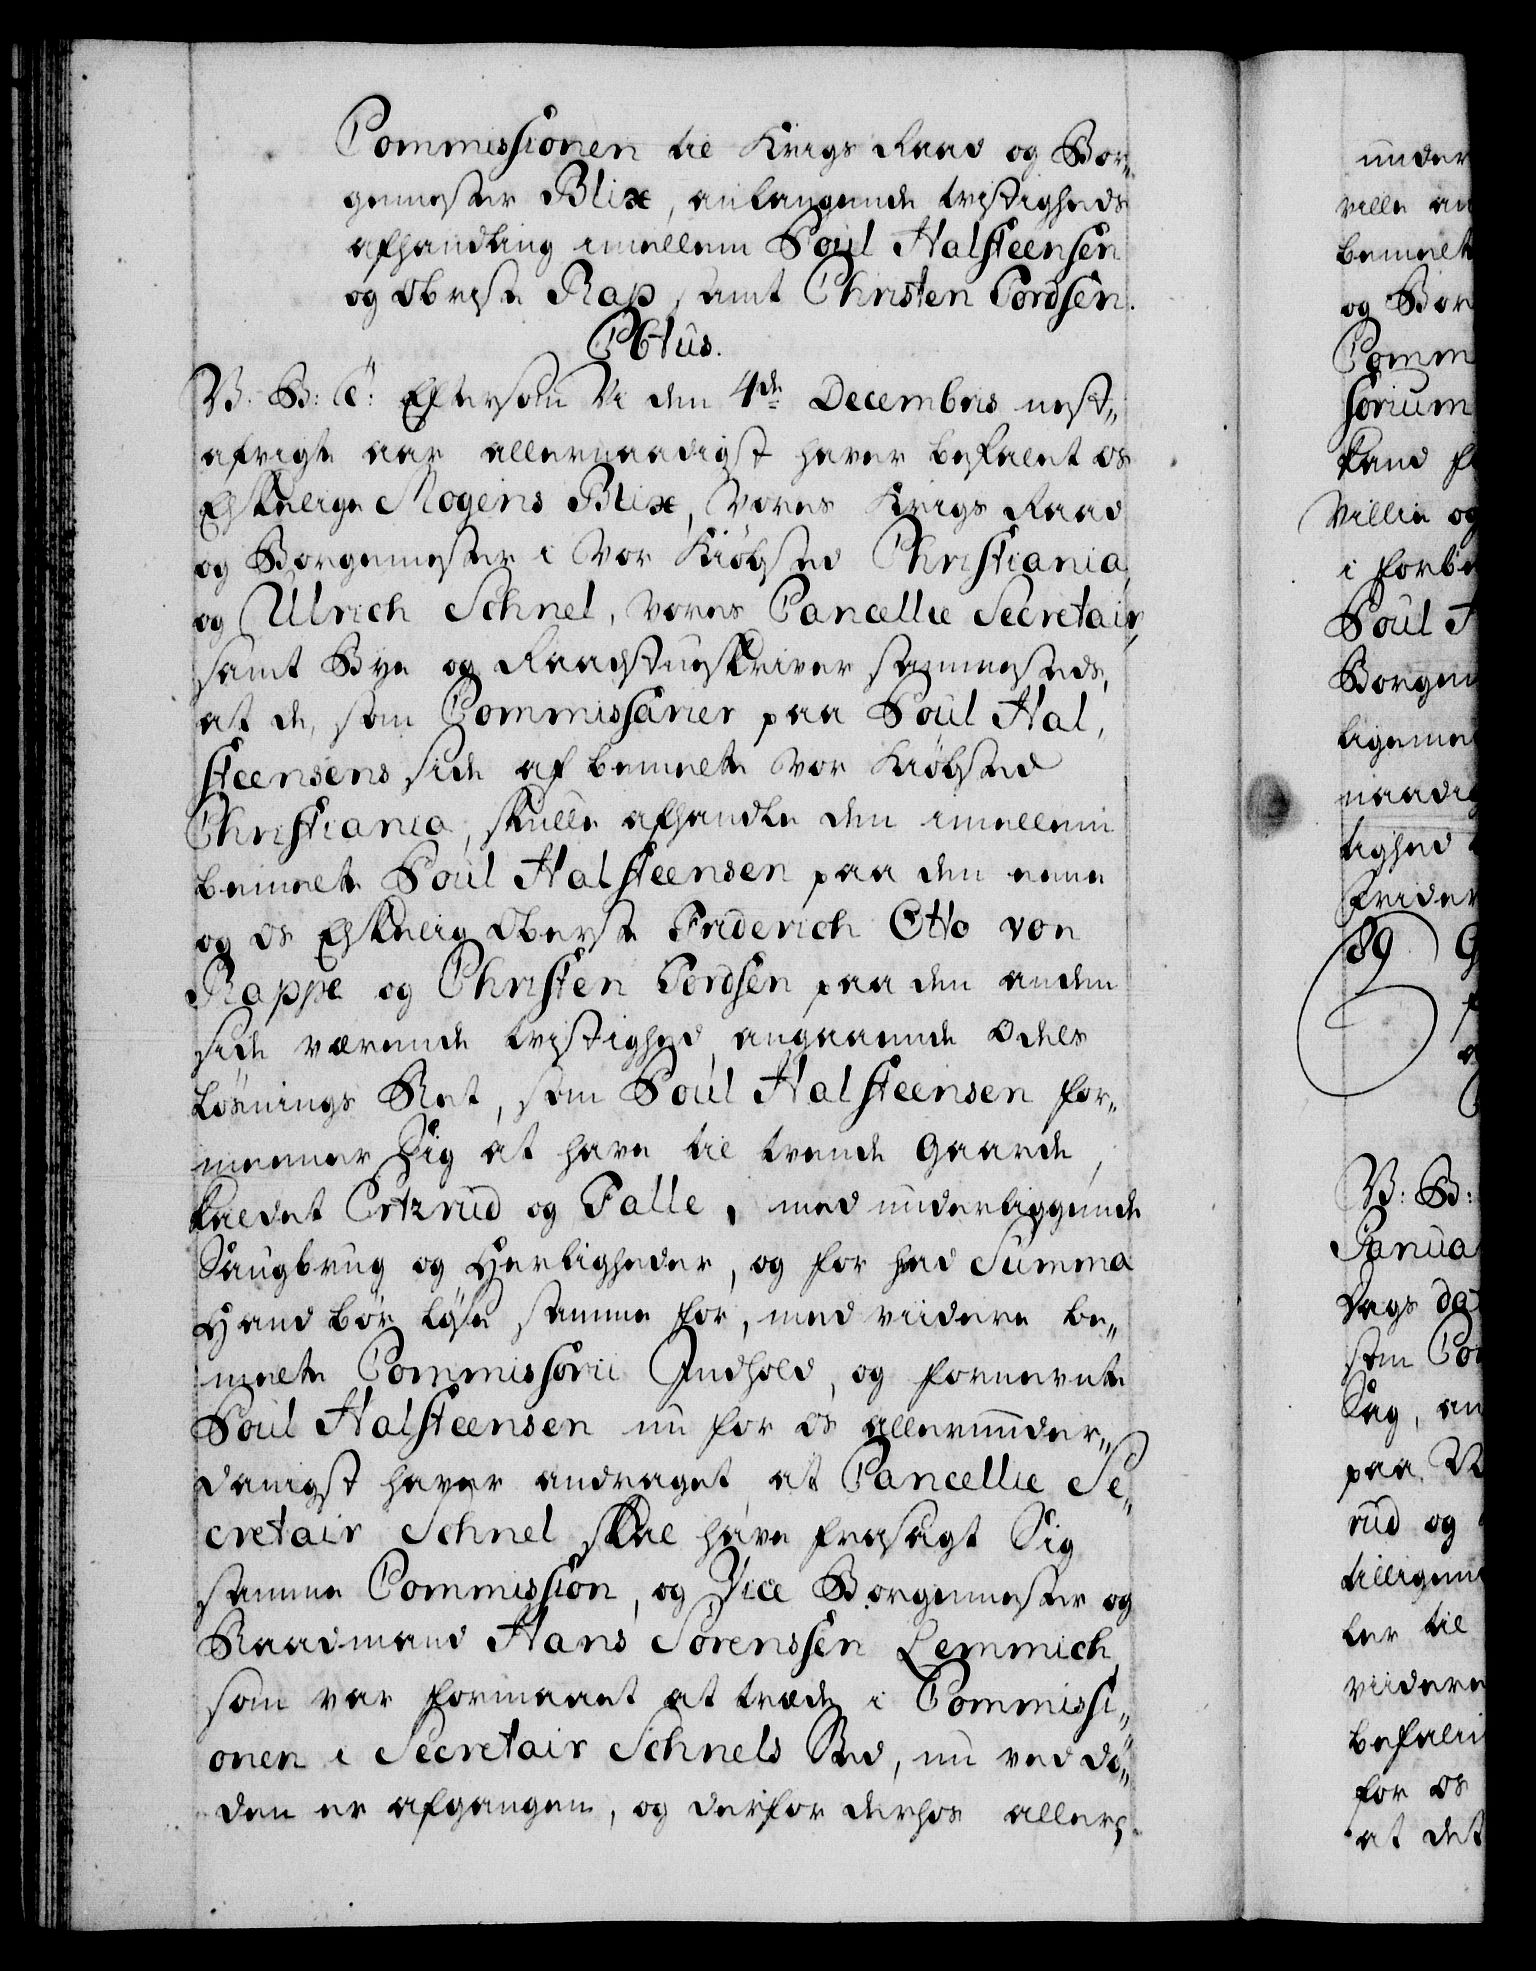 Commissionen til Krigs Raad og Bor„
gemester Blix, anlangende tvistigheds
afhandling imellem Poul Halsteensen
og Obriste Rap samt Christen Tordsen.
CVtus.
V. B: C: Eftersom Vi den 4de Decembris nest„
afvigte aar allernaadigst haver befalet os
Elskelige Mogens Blix, Vores Krigs Raad
og Borgemester i Vor Kiøbsted Christiania,
og Ulrich Schnel, vores Cancellie Secretair,
samt Bye og Raadstueskriver sammesteds,
at de, som Commissarier paa Poul Hal„
steensens side af bemelte Vor Kiøbsted
Christiania, skulle afhandle den imellem
bemelte Poul Halsteensen paa den eene
og os Elskelig Oberste Friderich Otto von
Rappe og Christen Tordsen paa den anden
side værende tvistighed, angaaende Odels
Løsnings Ret, som Poul Halsteensen for„
meener Sig at have til tvende Gaarde,
kaldet Ertzrud og Falle, med underliggende
Saugbrug og Herligheder, og for hvad Summa
Hand bør løse samme for, med viidere be„
melte Commissorii Indhold, og fornevnte
Poul Halsteensen nu for os allerunder„
danigst haver andraget, at Cancellie Se„
cretair Schnel skal have frasagt Sig
samme Commission, og Vice Borgemester og
Raadmand Hans Sørenssen Lemmich,
som var formaaet at træde i Commissi„
onen i Secretair Schnels Sted, nu ved dø„
den er afgangen, og derfor derhos aller„
under
ville an
bemelt
og Bor
Comm
sorium
kand f
Villie og
i forbe
Poul H
Borgem
ligeme
naadig
tighed
Frider
89 G
V: B:
Janua
Dags da
som Co
Sag, an
paa V
rud og
tilligem
ler til
viidere
befalin
for os
at det